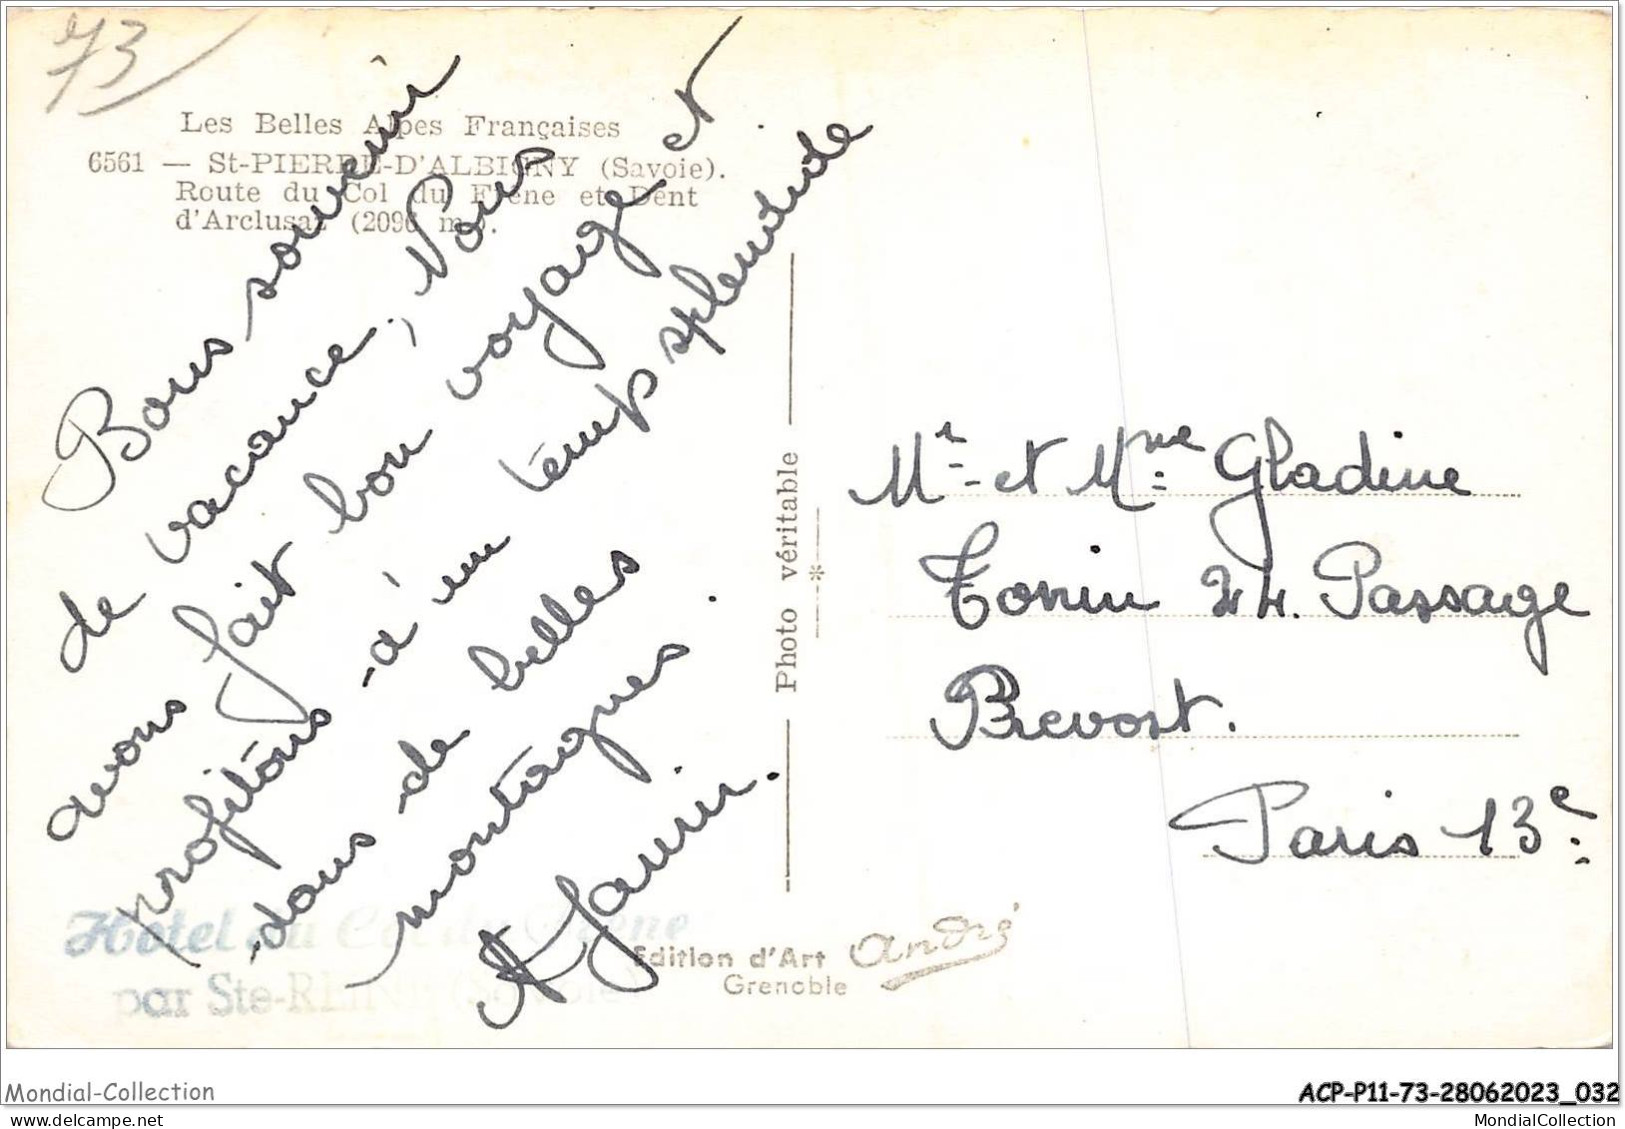 73
Les Belles Alpes Françaises
6561 — St-PIERRE-D'ALBIGNY (Savoie).
Route du Col du Frêne et Dent
d'Arclusaz (2096 m.).
Bous souvenir
de vacance, Nous
avons fait bon voyage et
profitons d'un temps splendide
dans de belles
montagnes.
Hôtel du Col du Frêne
par Ste-REINE (Savoie)
Photo véritable
*
Edition d'Art André
Grenoble
Mr et Mme Gladine
Tonin 24. Passage
Prevost.
Paris 13e
Mondial-Collection
ACP-P11-73-28062023_032
MondialCollection